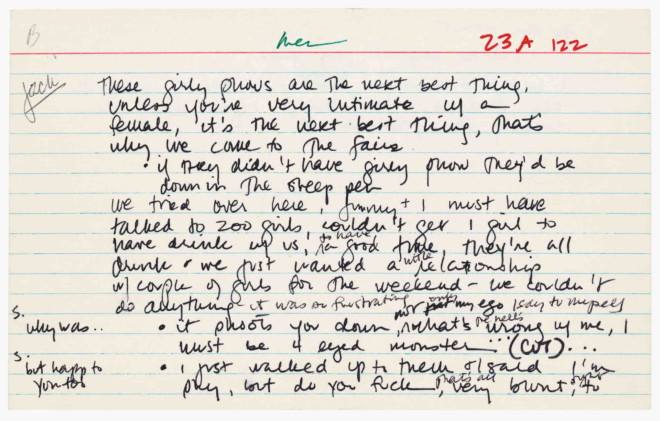 B men 23A 122
Jack
These girly shows are the next best thing,
unless you're very intimate w/ a
female, it's the next best thing, thats
why we come to the fairs
• if they didn't have girly show they'd be
down in the sheep pen
we tried over here, Jimmy + I must have
talked to 200 girls, couldn't get 1 girl to
have drink w/ us, to have a good time, they're all
drunk • we just wanted a little relationship
w/ couple of girls for the weekend - we couldn't
do anything - it was so frustrating not only my ego I say to myself
S. why was.. • it shoots you down, what's wrong w/ me, I
must be 4 eyed monster ... (CUT) ...
S. but happ to you too • i just walked up to them & said I'm
shy, but do you fuck, that's all, very blunt, to